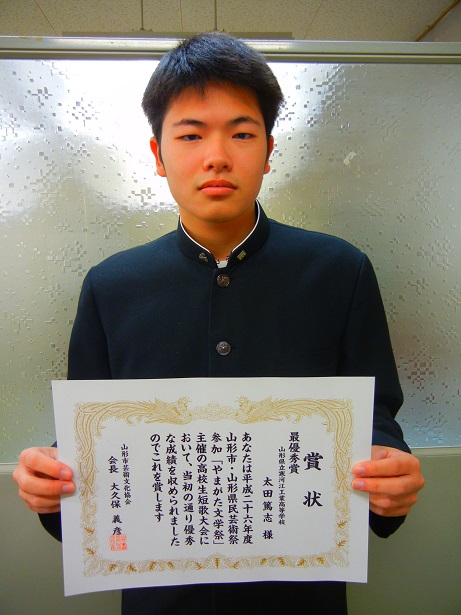 賞状
最優秀賞
山形県立寒河江工業高等学校
太田篤志 様
あなたは平成二十六年度
山形市・山形県民芸術祭
参加「やまがた文学祭」
主催の高校生短歌大会に
おいて、当初の通り優秀
な成績を収められました
のでこれを賞します
山形市芸術文化協会
会長 大久保義彦